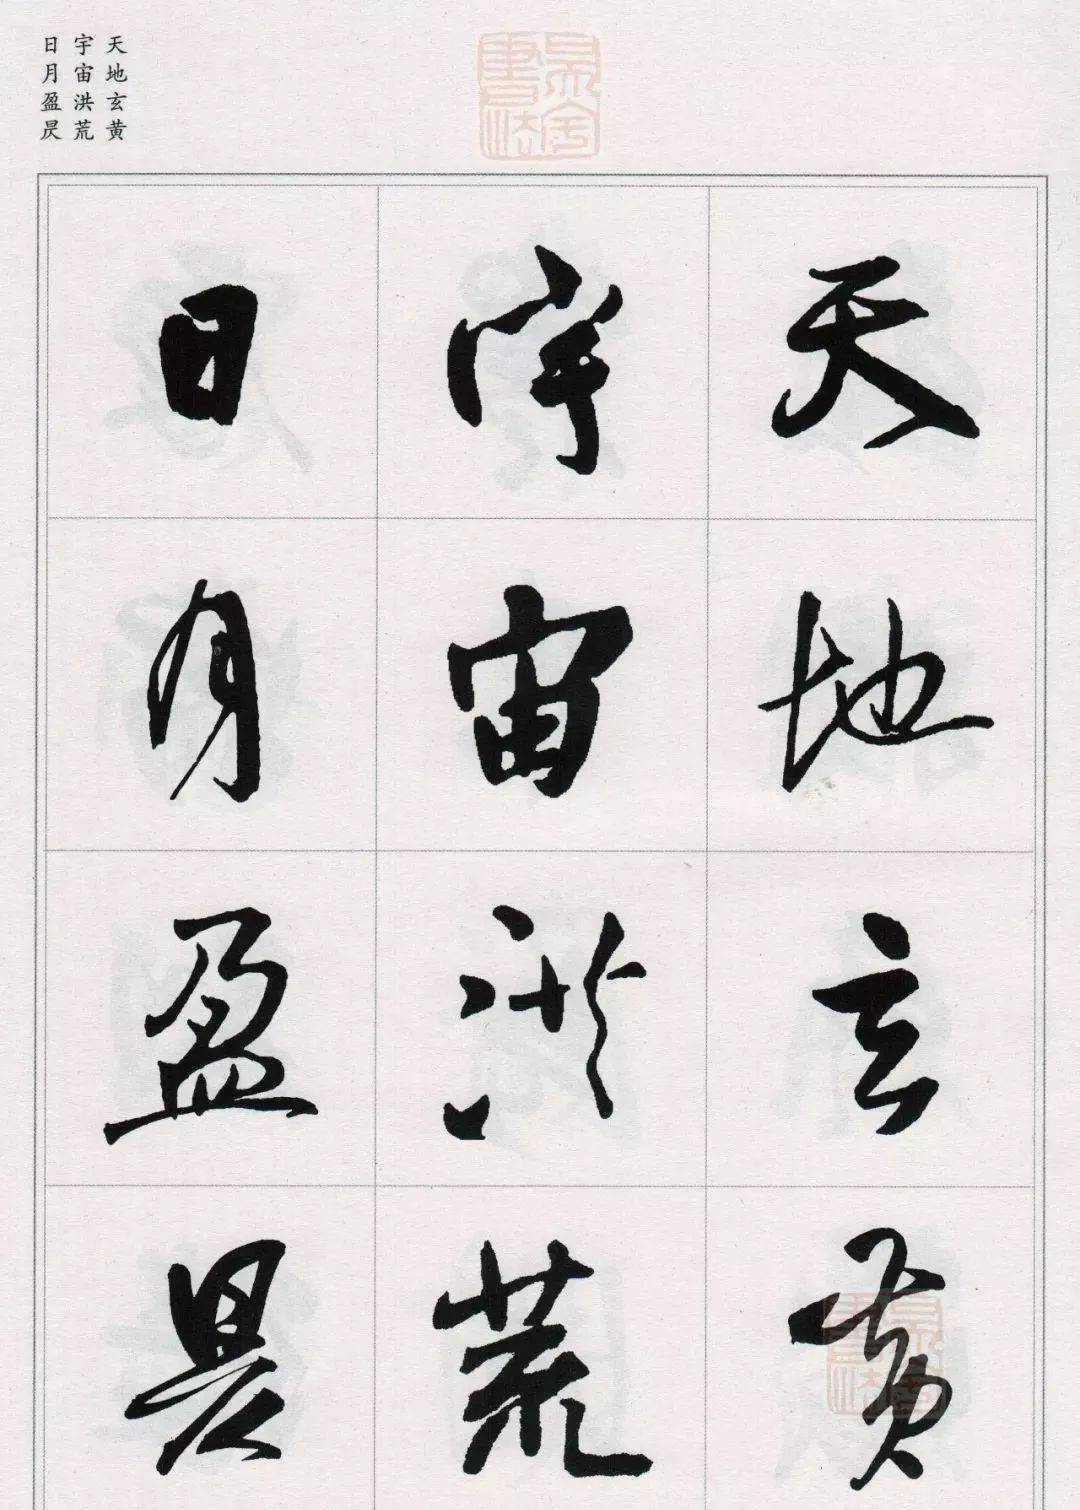 天地玄黄
宇宙洪荒
日月盈昃
天地玄黄
宇宙洪荒
日月盈昃